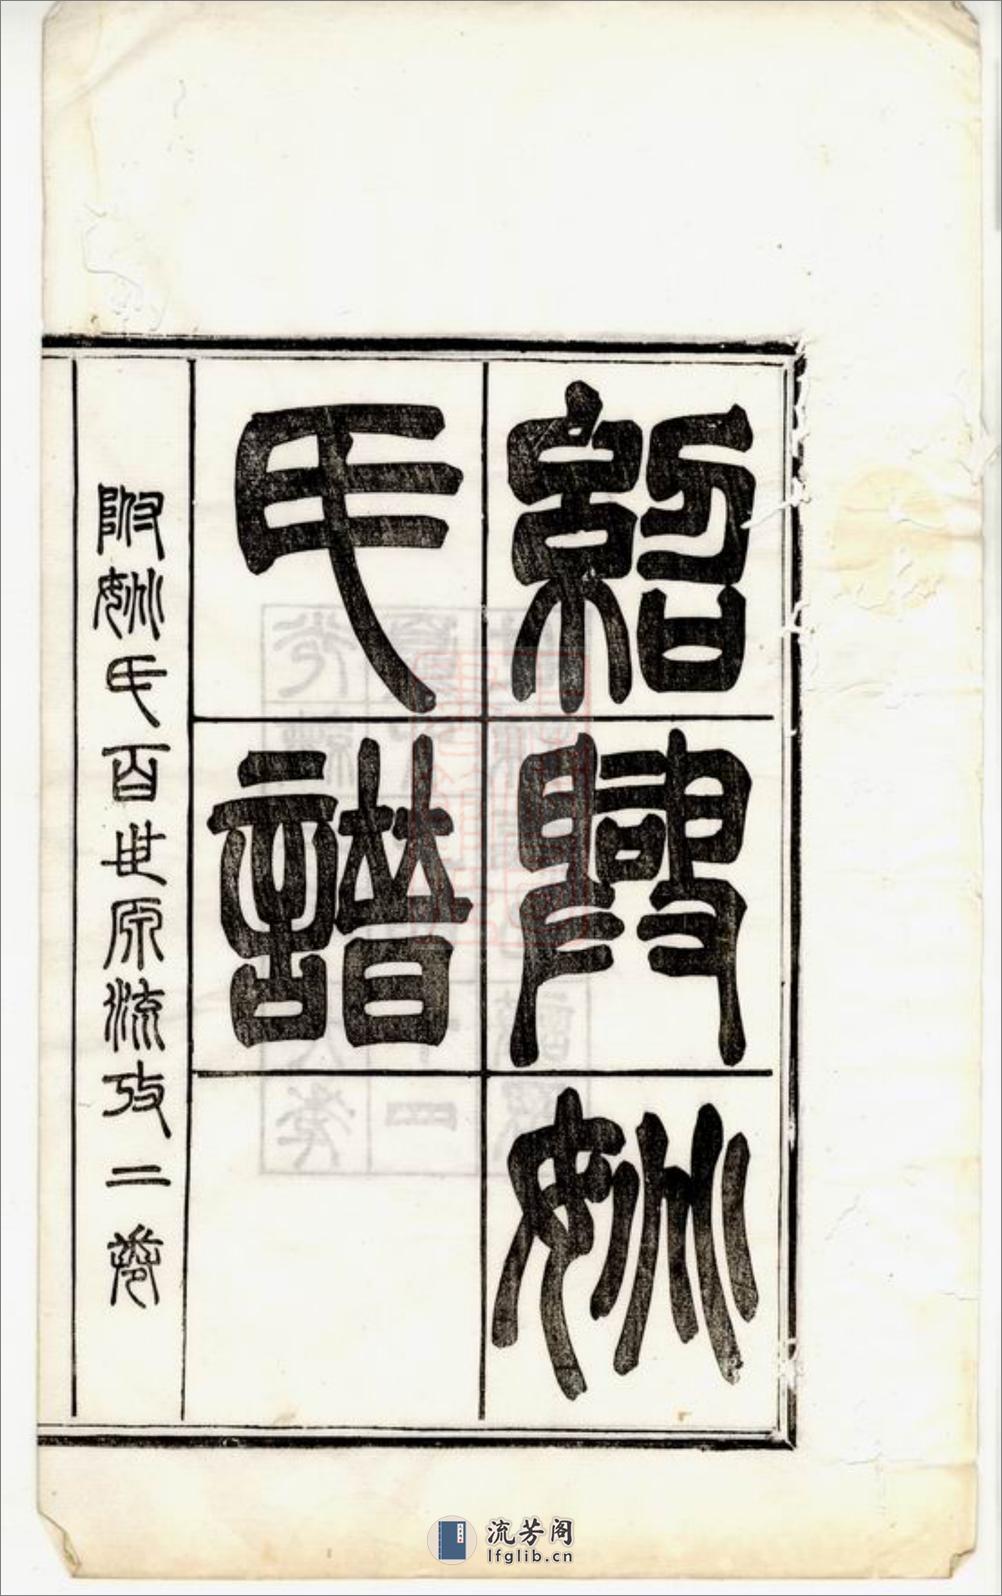 紹興姚
氏譜
附姚氏百世原流攷二卷
流芳阁
lfglib.cn